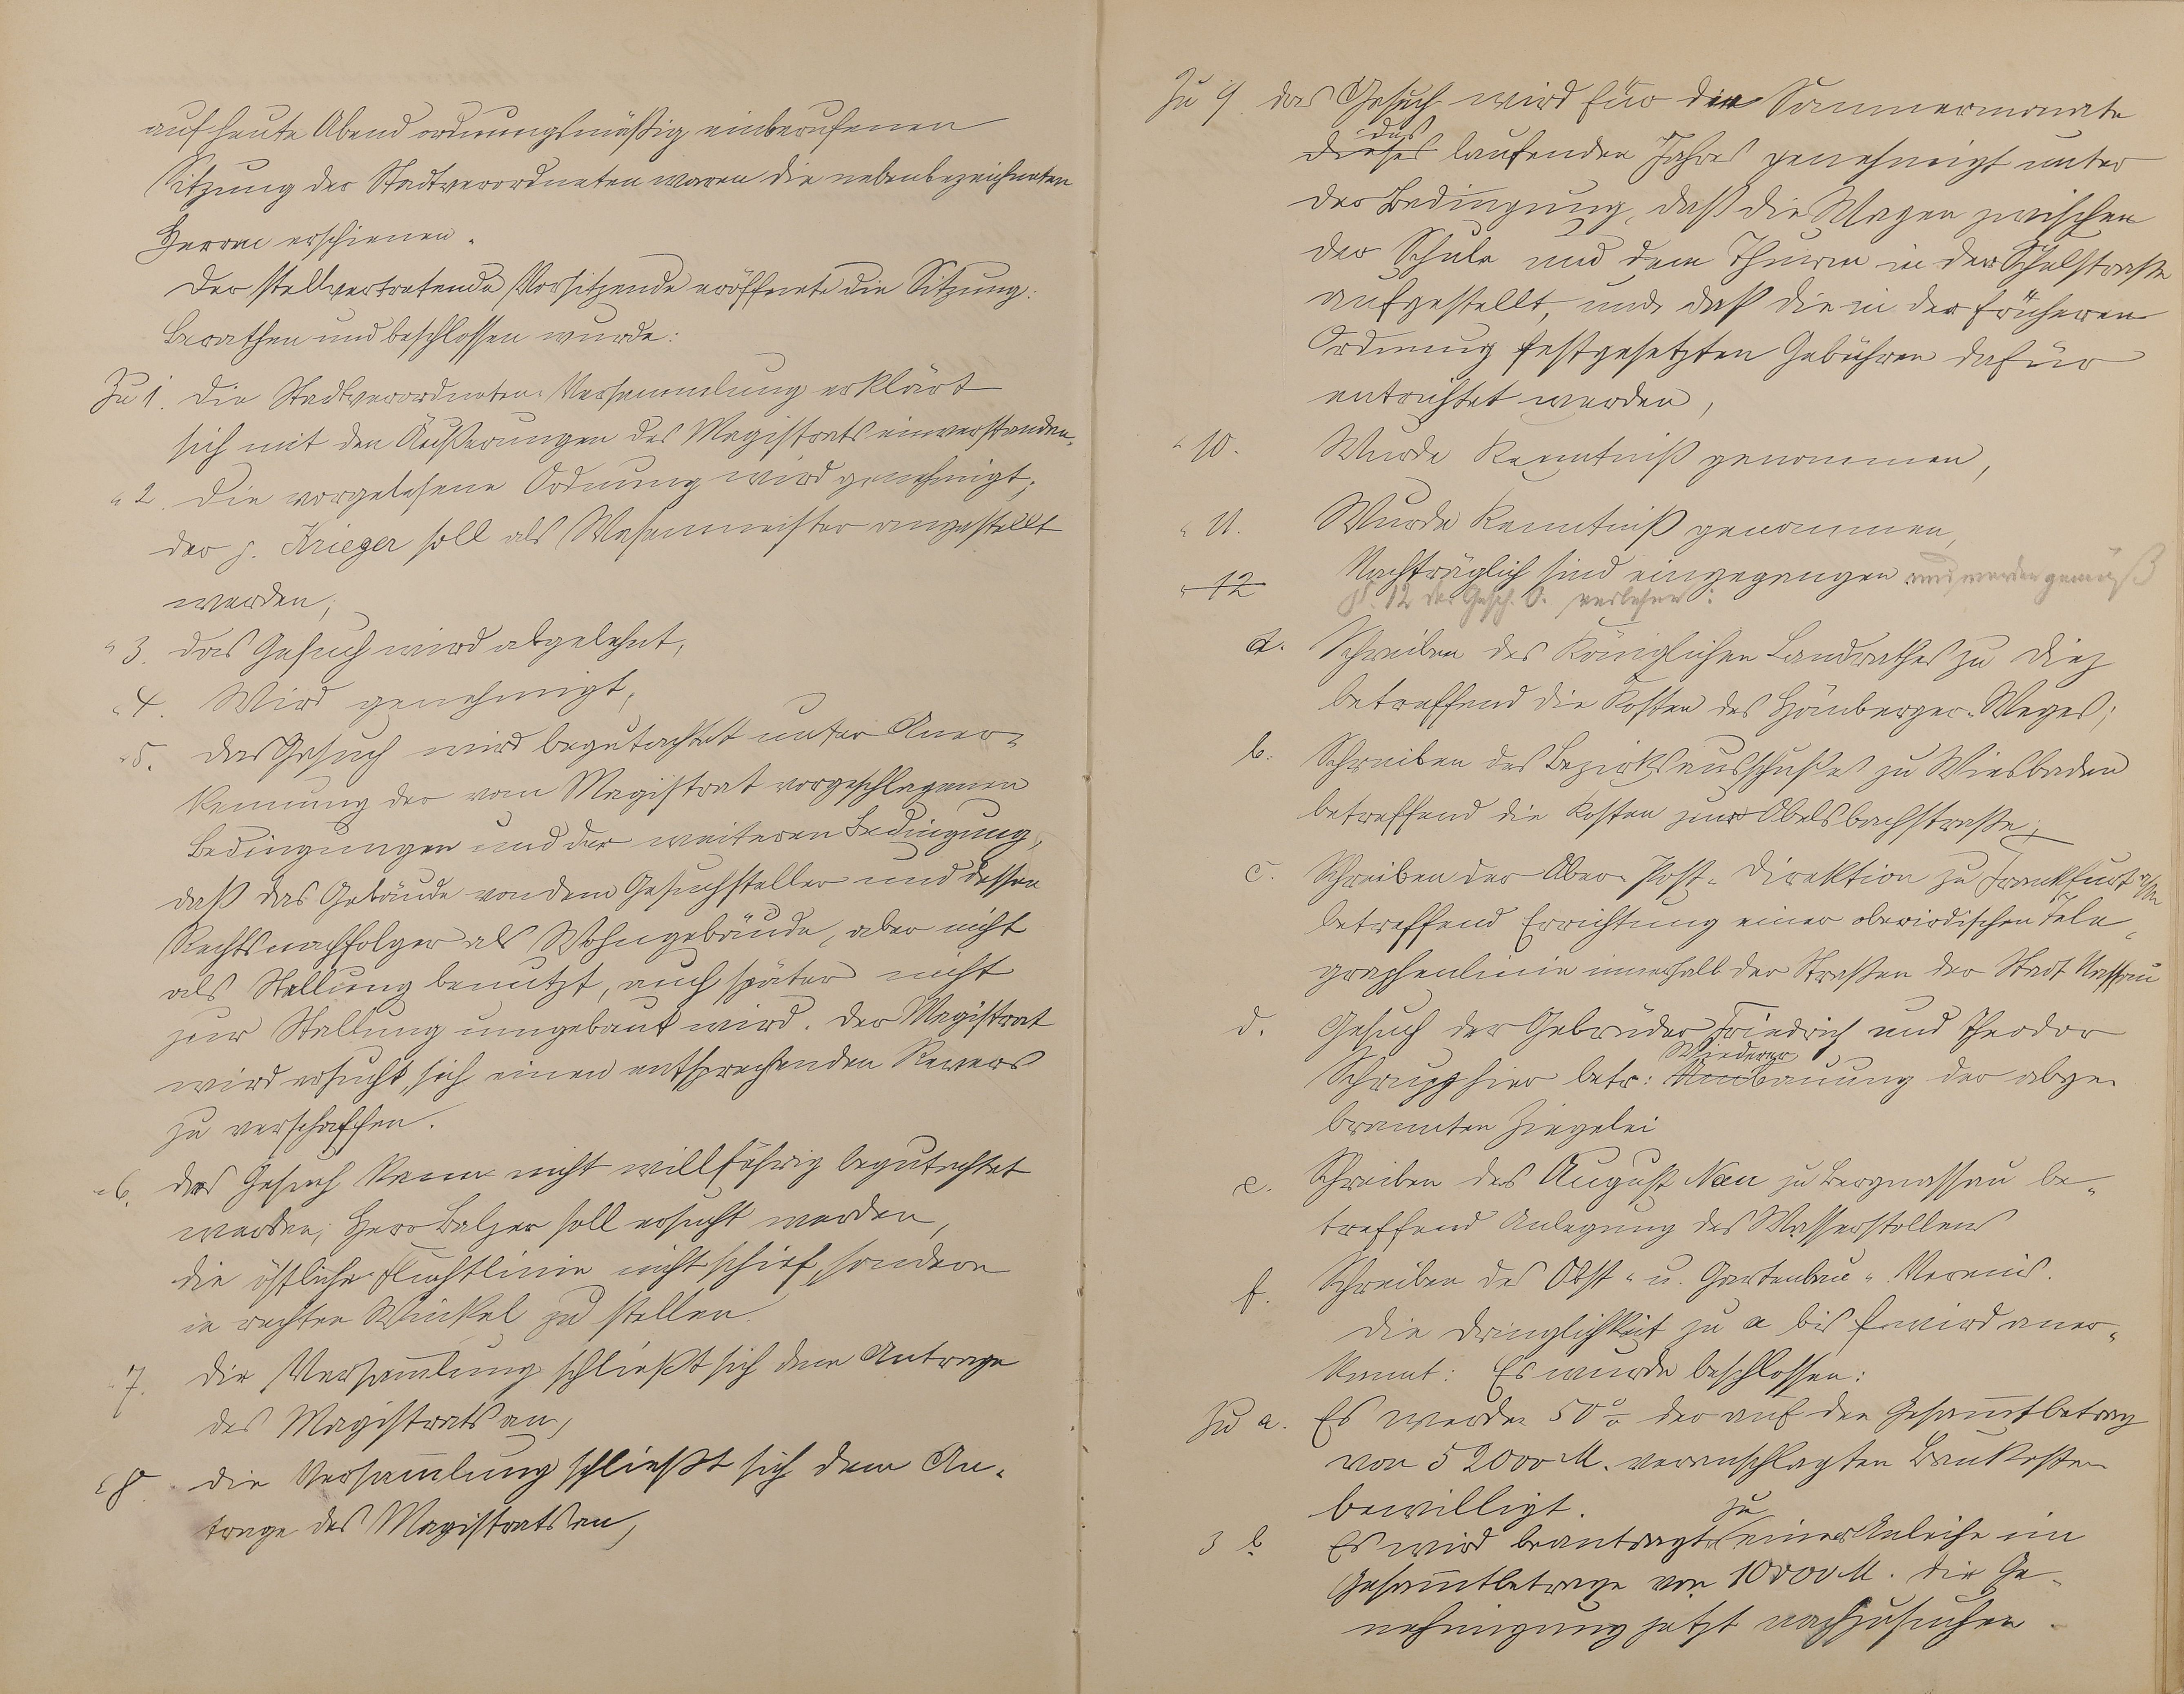 auf heute Abend ordnungsmäßig einberufenen
Sitzung der Stadtverordneten waren die nebenbezeichneten
Herren erschienen.
Der stellvertretende Vorsitzende eröffnete die Sitzung:
Berathen und beschlossen wurde:
Zu 1. die Stadtverordneten-Versammlung erklärt
sich mit den Äußerungen des Magistrats einverstanden.
" 2. die vorgelesene Ordnung wird genehmigt;
der p. Krieger soll als Wasenmeister angestellt
werden;
" 3. das Gesuch wird abgelehnt,
" 4. Wird genehmigt,
" 5. das Gesuch wird begutachtet unter Aner-
kennung der vom Magistrat vorgeschlagenen
Bedingungen und der weiteren Bedingung,
daß das Gebäude von dem Gesuchsteller und dessen
Rechtsnachfolger als Wohngebäude, aber nicht
als Stallung benutzt, auch später nicht
zur Stallung umgebaut wird. Der Magistrat
wird ersucht, sich einen entsprechenden Revers
zu verschaffen.
" 6. das Gesuch kann nicht willfährig begutachtet
werden; Herr Balzer soll ersucht werden,
die östliche Fluchtlinie nicht schief, sondern
in rechten Winkel zu stellen.
" 7. die Versammlung schließt sich dem Antrage
des Magistrats an,
" 8. die Versammlung schließt sich dem An-
trage des Magistrats an,
Zu 9. das Gesuch wird für die Sommermonate
des
dieses laufenden Jahres genehmigt unter
der Bedingung, daß die Wagen zwischen
der Schule und dem Thurm in der Schulstraße
aufgestellt, und daß die in der früheren
Ordnung festgesetzten Gebühren dafür
entrichtet werden,
" 10. Wurde Kenntniß genommen,
" 11. Wurde Kenntniß genommen,
" 12 Nachträglich sind eingegangen und werden gemäß
§. 12 der Gesch. O. verlesen:
a. Schreiben des Königlichen Landrathes zu Diez
betreffend die Kosten des Hömberger-Weges;
b. Schreiben des Bezirksausschußes zu Wiesbaden
betreffend die Kosten zur Obelsbachstraße;
c. Schreiben der Ober-Post-Direktion zu Frankfurt a/M
betreffend Errichtung einer oberirdischen Tele-
graphenlinie innerhalb der Straßen der Stadt Nassau
d. Gesuch der Gebrüder Friedrich und Theodor
Wiederer
Schrupp hier betr: bauung der abge-
brannten Ziegelei
e. Schreiben des August Nau zu Bergnassau be-
treffend Anlegung des Wasserstollens
f. Schreiben des Obst- u. Gartenbau-Vereins.
Die Dringlichkeit zu a bis f wird aner-
kannt: Es wurde beschlossen:
Zu a. Es werden 50% der auf den Gesammtbetrag
von 52000 M. veranschlagten Baukosten
bewilligt.
zu
3 b Es wird beantragt einer Anleihe im
Gesammtbetrage von 10000 M. die Ge-
nehmigung jetzt nachzusuchen.